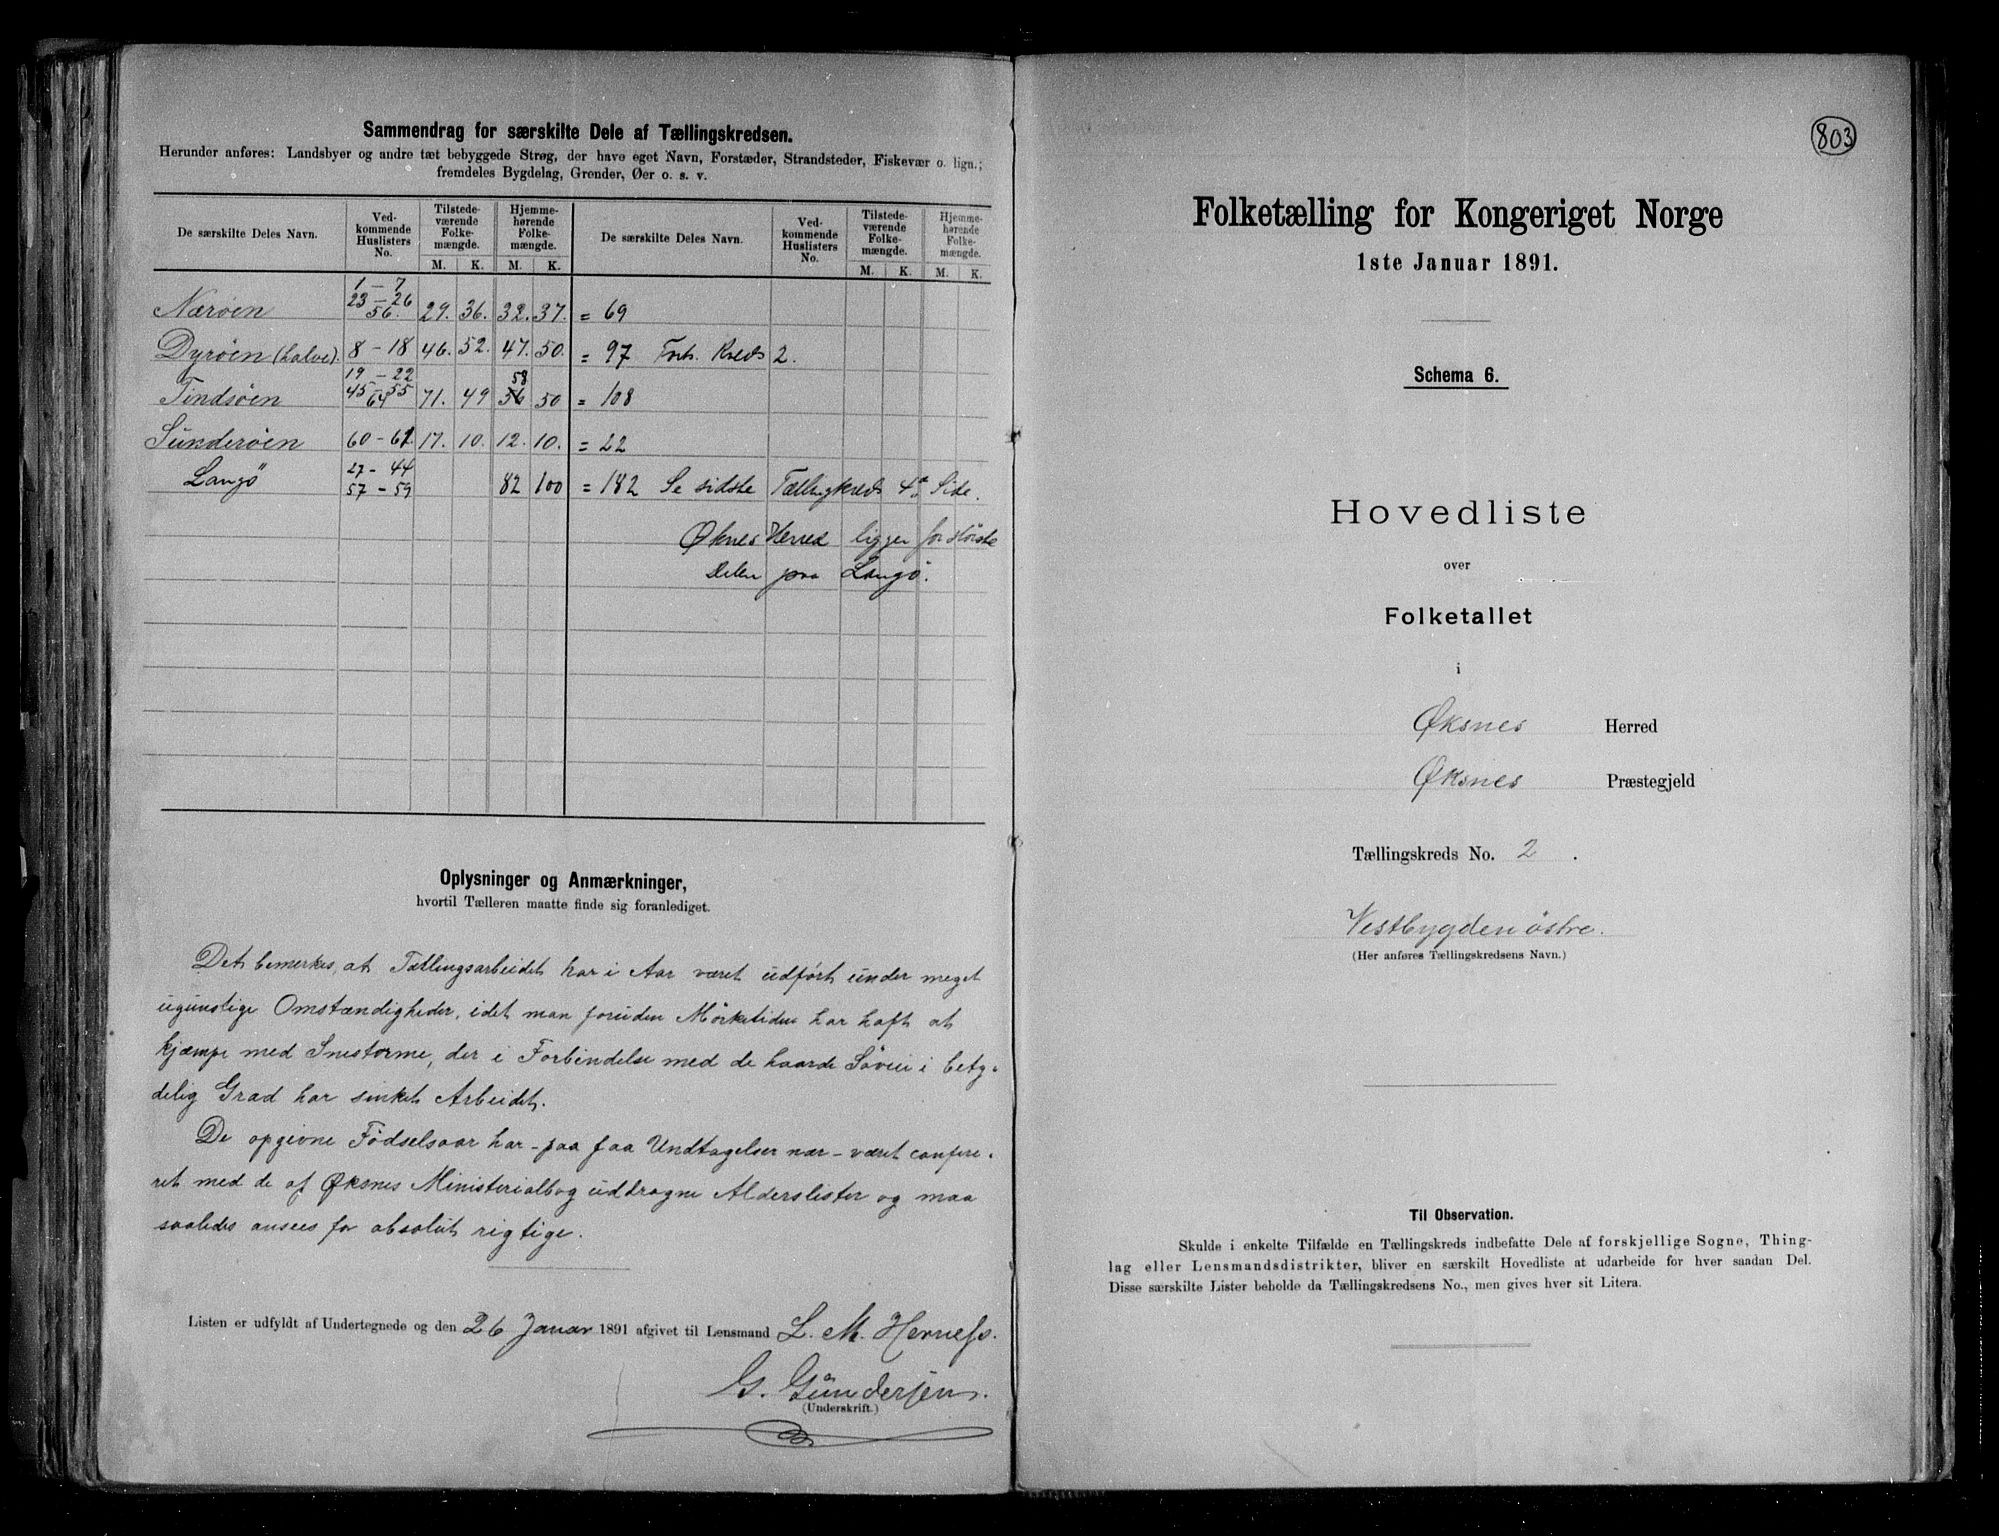 Sammendrag for særskilte Dele af Tællingskredsen.
Herunder anføres: Landsbyer og andre tæt bebyggede Strøg, der have eget Navn, Forstæder, Strandsteder, Fiskevær o. lign.;
fremdeles Bygdelag, Grender, Øer o. s. v.
De særskilte Deles Navn. Ved-kommende Huslisters No. Tilstede-værende Folke-mængde. Hjemme-hørende Folke-mængde. De særskilte Deles Navn. Ved-kommende Huslisters No. Tilstede-værende Folke-mængde. Hjemme-hørende Folke-mængde.
M. K. M. K. M. K. M. K.
1 - 7
23 - 26
Nærøen 56. 29. 36. 32. 37. = 69
Dyrøen (halve). 8 - 18 46. 52. 47. 50. = 97 Forts. Kreds 2.
19 - 22
45 - 55 58
Tindsøen 64 71. 49 56 50 = 108
Sunderøen 60 - 61 17. 10. 12. 10. = 22
27 - 44
Langø 57 - 59 82 100 = 182 Se sidste Tællingkreds 4de Side.
Øknes Herred ligger for største
Delen paa Langø.
Oplysninger og Anmærkninger,
hvortil Tælleren maatte finde sig foranlediget.
Det bemerkes, at Tællingsarbeidet har i Aar været udført under meget
ugunstige Omstændigheder, idet man foruden Mørketiden har haft at
kjæmpe med Snestorme, der i Forbindelse med de haarde Søvei i bety-
delig Grad har sinket Arbeidet.
De opgivne Fødselsaar har - paa faa Undtagelser nær - været confere-
ret med de af Øksnes Ministerialbog uddragne Alderslister og maa
saaledes ansees for absolut rigtige.
Listen er udfyldt af Undertegnede og den 26 Januar 1891 afgivet til Lensmand L. M. Herness.
G. Gundersen.
(Underskrift.)
803
Folketælling for Kongeriget Norge
1ste Januar 1891.
Schema 6.
Hovedliste
over
Folketallet
i
Øksnes Herred
Øksnes Præstegjeld
Tællingskreds No. 2.
Vestbygden østre.
(Her anføres Tællingskredsens Navn.)
Til Observation.
Skulde i enkelte Tilfælde en Tællingskreds indbefatte Dele af forskjellige Sogne, Thing-
lag eller Lensmandsdistrikter, bliver en særskilt Hovedliste at udarbeide for hver saadan Del.
Disse særskilte Lister beholde da Tællingskredsens No., men gives hver sit Litera.